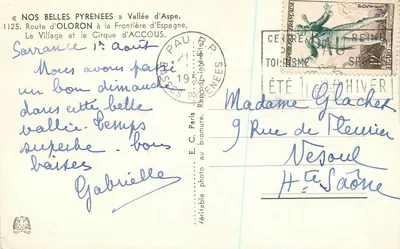 « NOS BELLES PYRENEES » Vallée d'Aspe.
1125. Route d'OLORON à la Frontière d'Espagne,
Le Village et le Cirque d'ACCOUS.
Sarrance 1er Août
Nous avons passé
un bon dimanche
dans cette belle
vallée. Temps
superbe. bons
baisers
Gabrielle
E. C. Paris
Véritable photo au bromure.
PAU R.P.
BSES PYRENEES
PAU
TOURISME
ÉTÉ HIVER
Madame Glachet
9 Rue de
Vesoul
Hte Saône